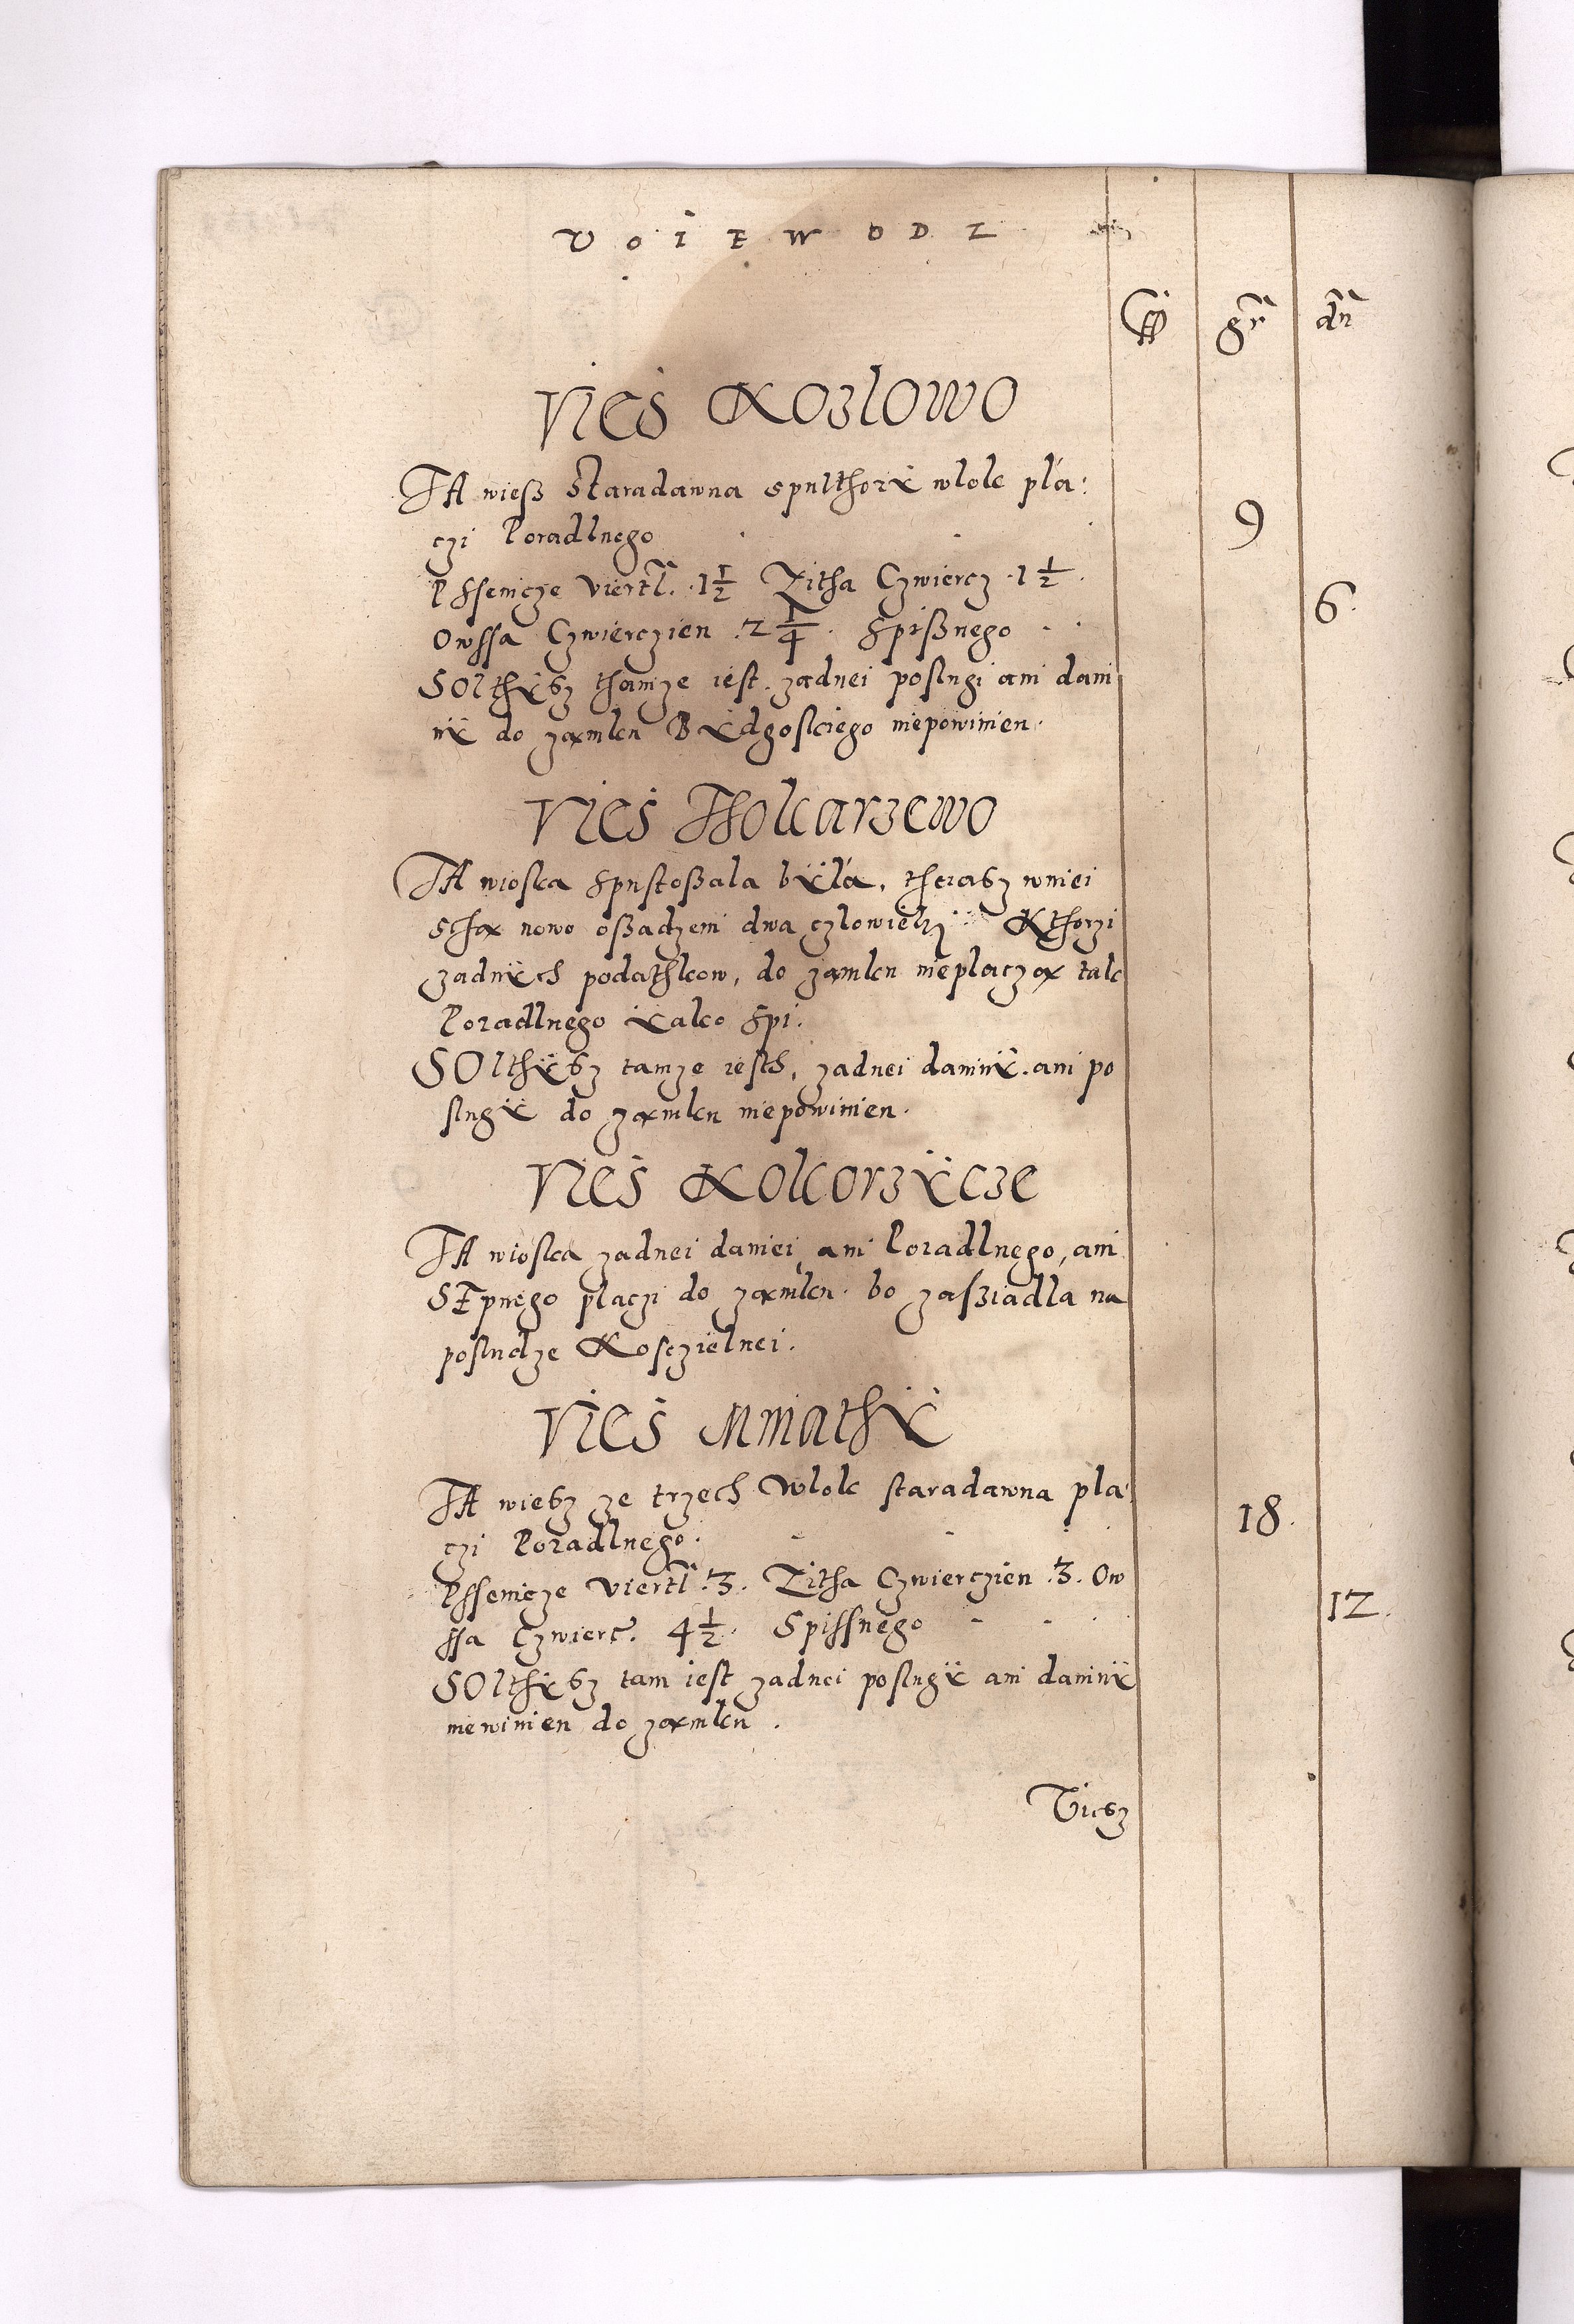 VOIEWODZ
fl gr dn
Vies Kozlowo
TA wieß Staradawna spulthorÿ wlok pla:
czi Poradlnego 9
Pssenicze Viertl. 1 1/2 Zitha Czwiercz 1 1/2
Owssa Czwierczien 2 1/4 Spißnego 6
SOlthÿsz thamze iest zadnei poslugi ani dani
nÿ do zamku Bÿdgoskiego niepowinien.
Vies Thokarzewo
TA wioska spustoßala bÿla, therasz wniei
sąą nowo oßadzeni dwa czlowieki Kthorzi
zadnÿch podathkow, do zamku nieplaczą tak
Poradlnego ÿako Spi:
SOlthÿsz tamze iesth, zadnei daninÿ ani po
slugÿ do zamku niepowinien.
Vies Kokorzÿcze
TA wioska zadnei daniei, ani Poradlnego, ani
SEpnego placzi do zamku bo zasziadla na
posludze Kosczielnei.
Vies Mniathÿ
TA wiesz ze trzech Wlok staradawna pla:
czi Poradlnego. 18.
Pssenicze Viertl 3. Zitha Czwierczien 3. Ow
ssa Czwierc. 4 1/2 Spissnego 12.
SOlthÿsz tam iest zadnei poslugÿ ani daninÿ
niewinien do zamku.
Viesz